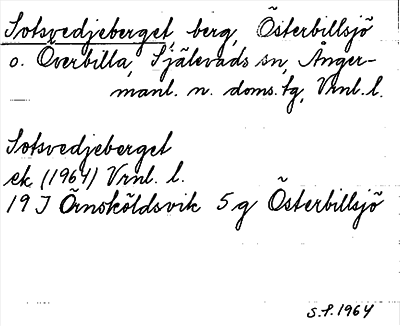 Sotsvedjeberget, berg, Österbillsjö
o. Överbilla, Själevads sn, Ånger-
manl. n. doms.tg, Vrnl. l.
Sotsvedjeberget
ek (1964) Vrnl. l.
19 J Örnsköldsvik 5 g Österbillsjö
S.F. 1964